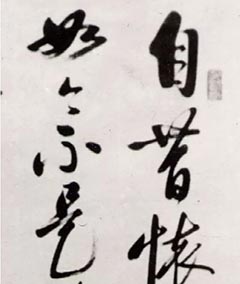 自昔懷
如今不是